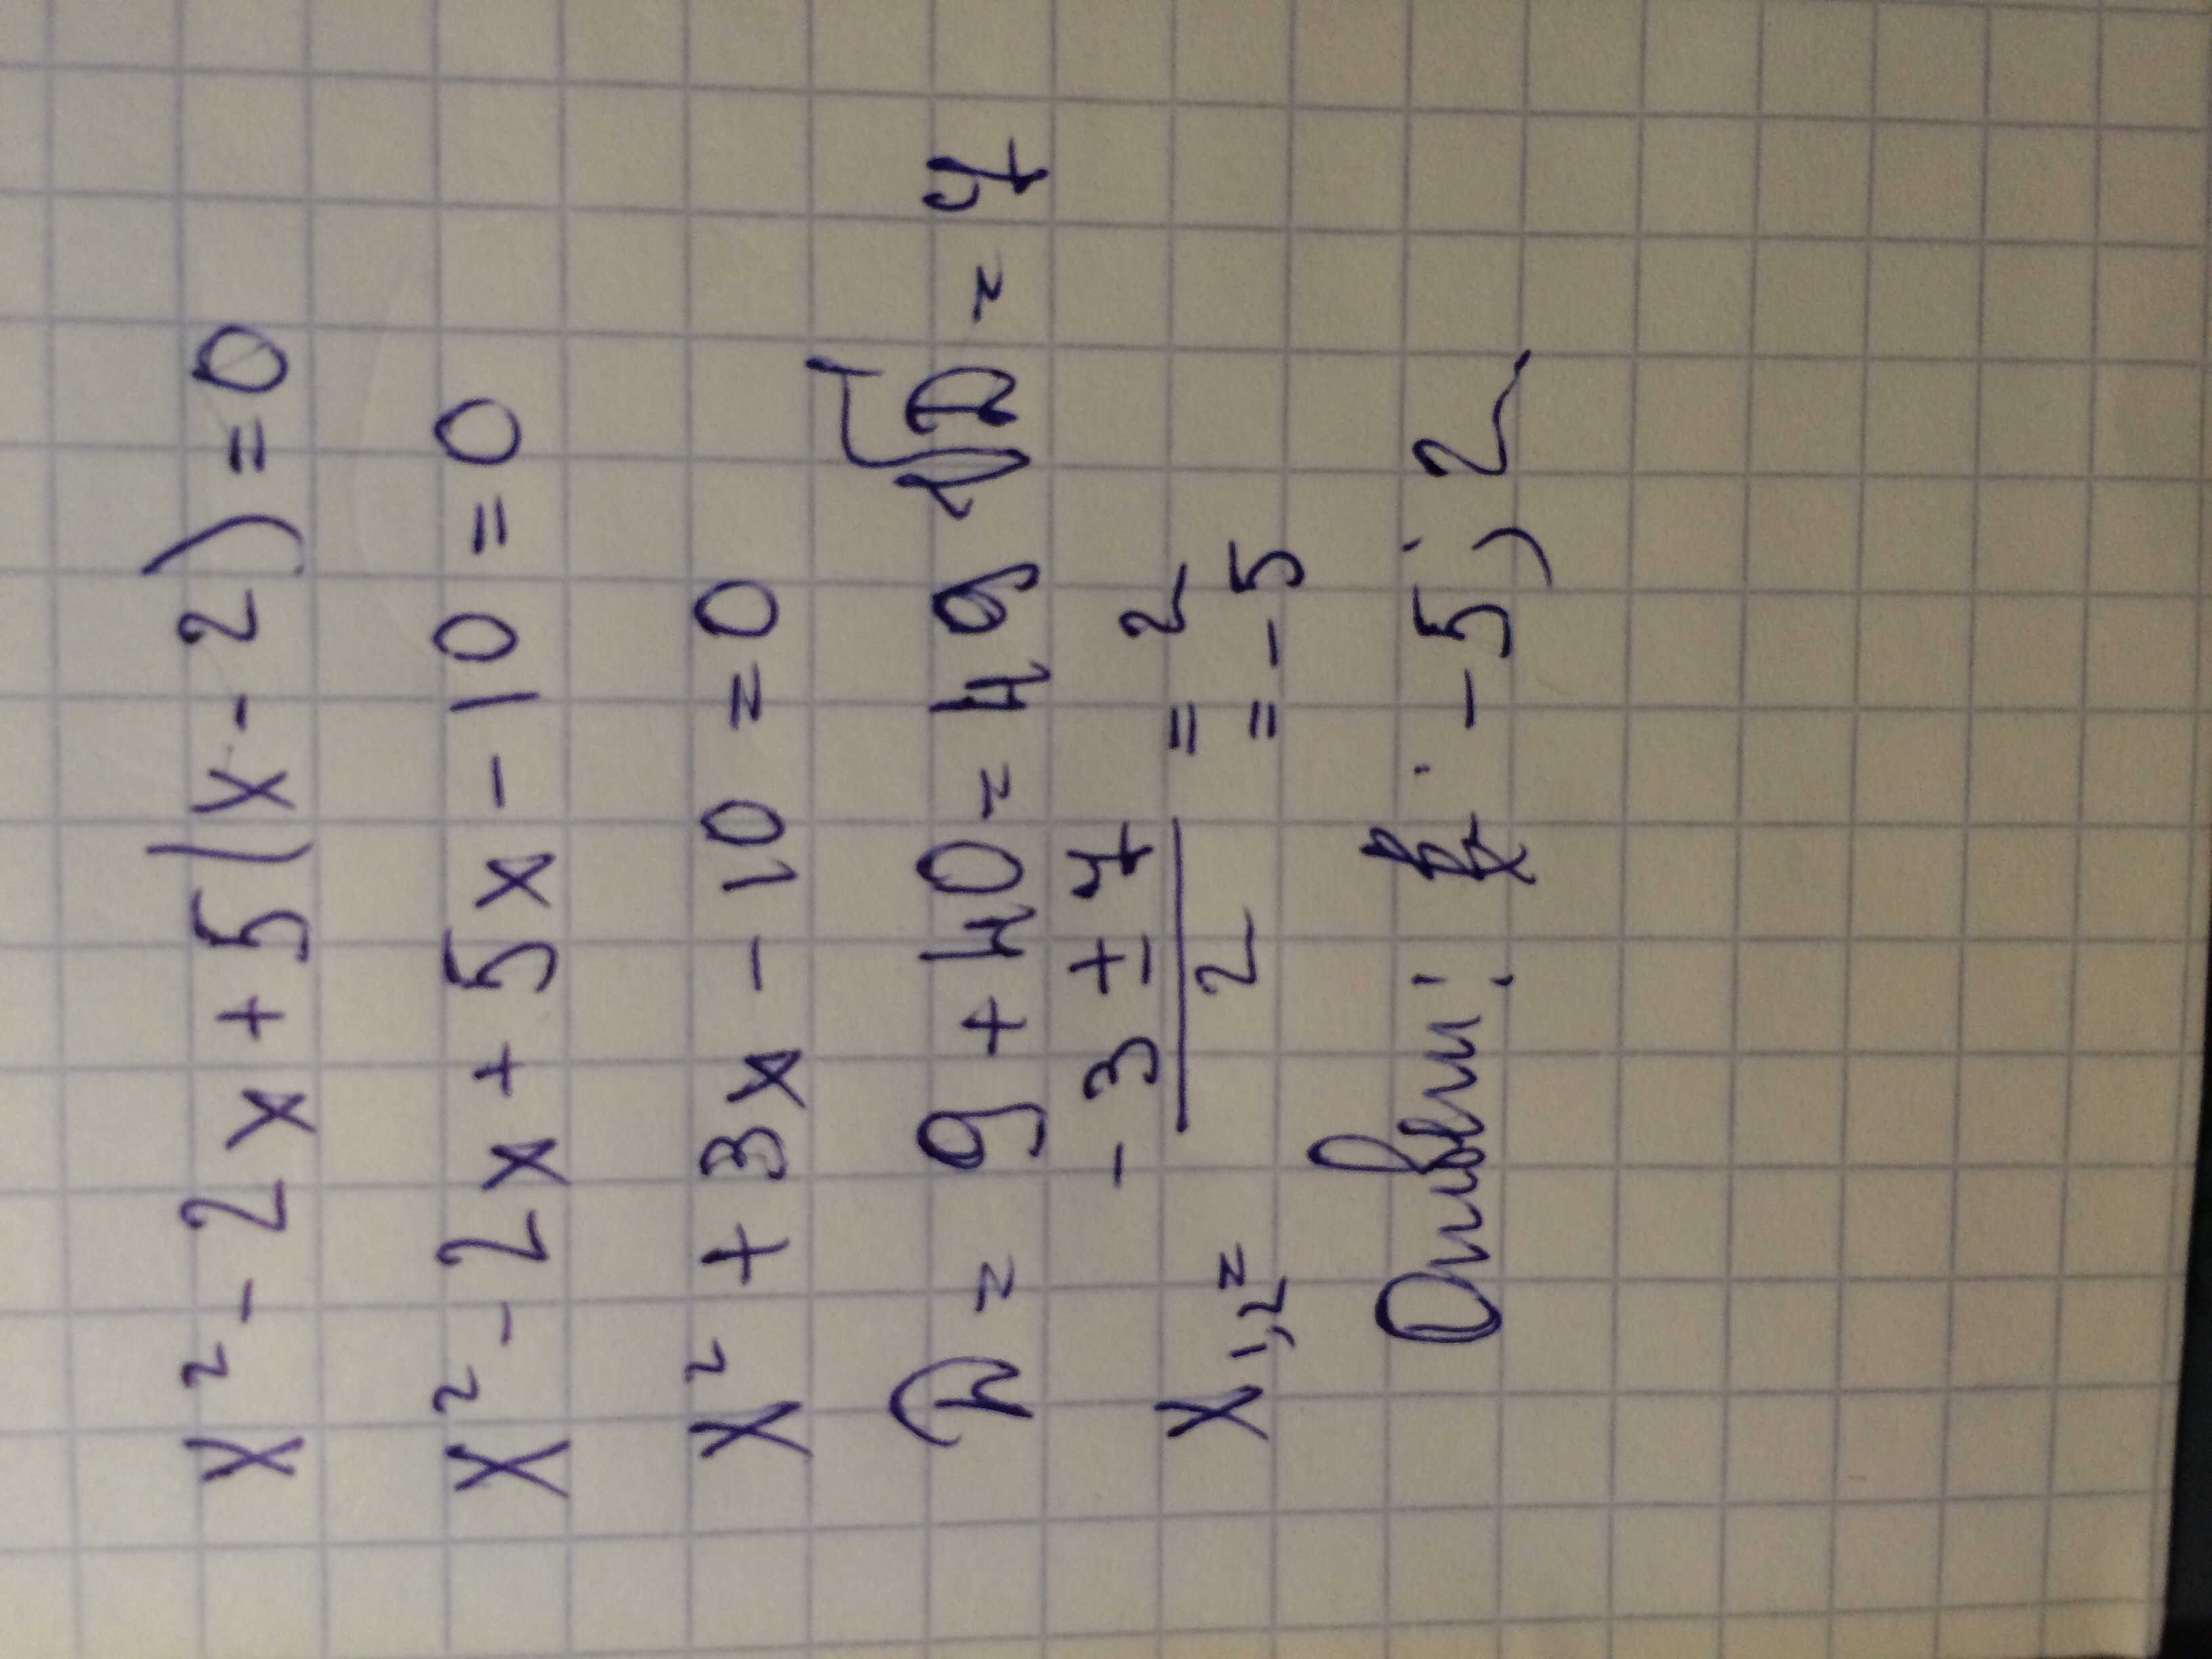 x² - 2x + 5(x - 2) = 0
x² - 2x + 5x - 10 = 0
x² + 3x - 10 = 0
D = 9 + 40 = 49 √D = 7
x₁,₂ = (-3 ± 7)/2 = 2
= -5
Ответ: -5; 2